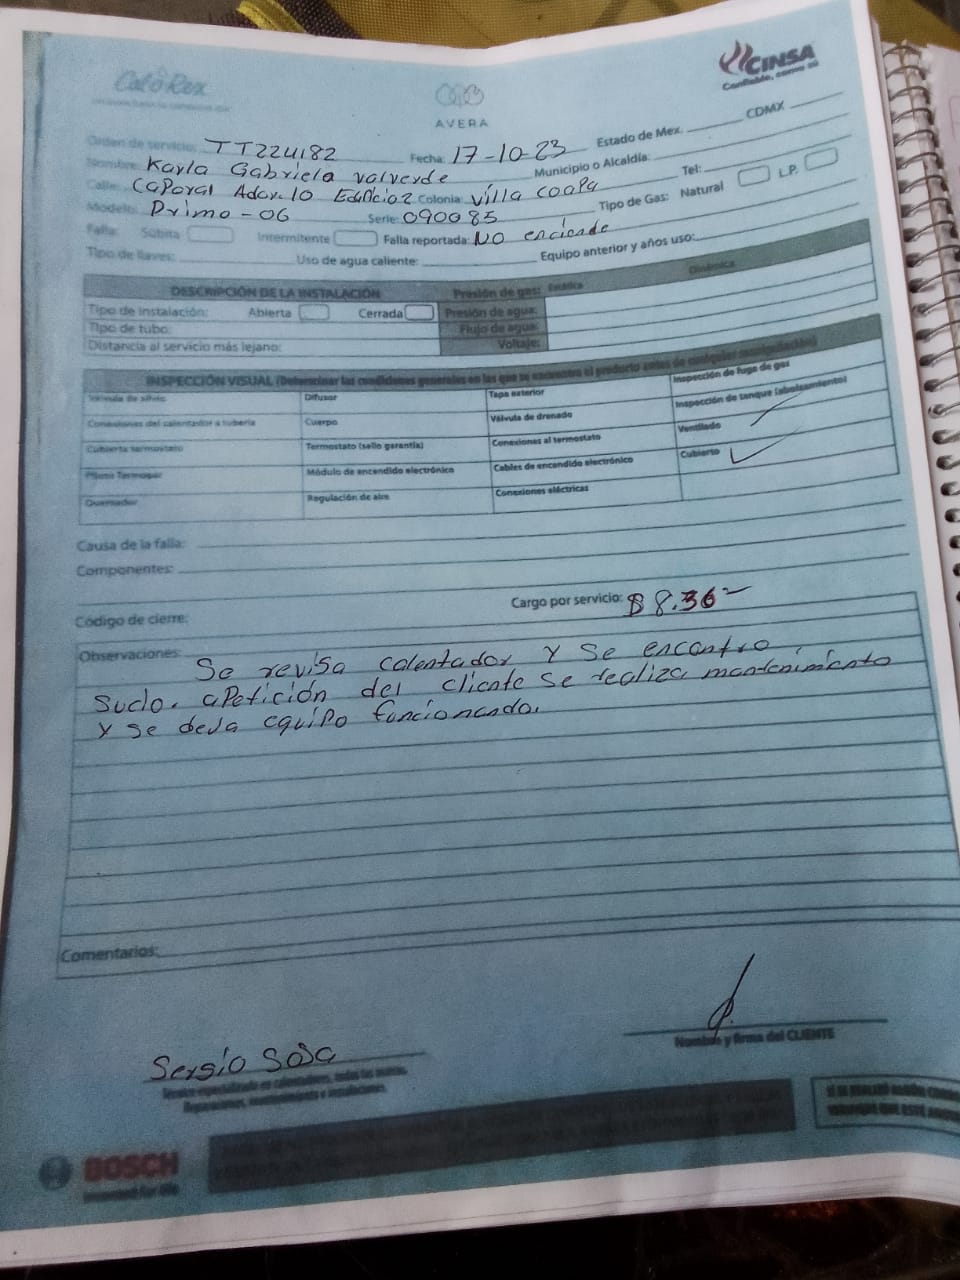 Cal-O-Rex
AVERA
CINSA
Confiable, como tú
Orden de servicio: TT224182 Fecha: 17-10-23 Estado de Mex. CDMX
Nombre: Karla Gabriela valverde Municipio o Alcaldía:
Calle: Caporal Ador. 10 Edificio 2 Colonia: Villa coapa Tel:
Modelo: Primo-06 Serie: 090085 Tipo de Gas: Natural L.P.
Falla: Súbita Intermitente Falla reportada: NO enciende
Tipo de llaves: Uso de agua caliente: Equipo anterior y años uso:
DESCRIPCIÓN DE LA INSTALACIÓN Presión de gas: Estática Dinámica
Tipo de instalación: Abierta Cerrada Presión de agua:
Tipo de tubo: Flujo de agua:
Distancia al servicio más lejano: Voltaje:
INSPECCIÓN VISUAL (Determinar las condiciones generales en las que se encuentra el producto antes de cualquier manipulación)
Válvula de alivio Difusor Tapa exterior Inspección de fuga de gas
Conexiones del calentador a tubería Cuerpo Válvula de drenado Inspección de tanque (abolsamiento)
Cubierta termostato Termostato (sello garantía) Conexiones al termostato Ventilado
Piloto Termopar Módulo de encendido electrónico Cables de encendido electrónico Cubierto ✓
Quemador Regulación de aire Conexiones eléctricas
Causa de la falla:
Componentes:
Código de cierre: Cargo por servicio: $ 8.36-
Observaciones: Se revisa calentador y se encontro
Sucio. apetición del cliente se realiza mantenimiento
y se deja equipo funcionando.
Comentarios:
Sergio Sosa
Técnico especializado en calentadores, todas las marcas.
Reparaciones, mantenimiento e instalaciones.
Nombre y firma del CLIENTE
BOSCH